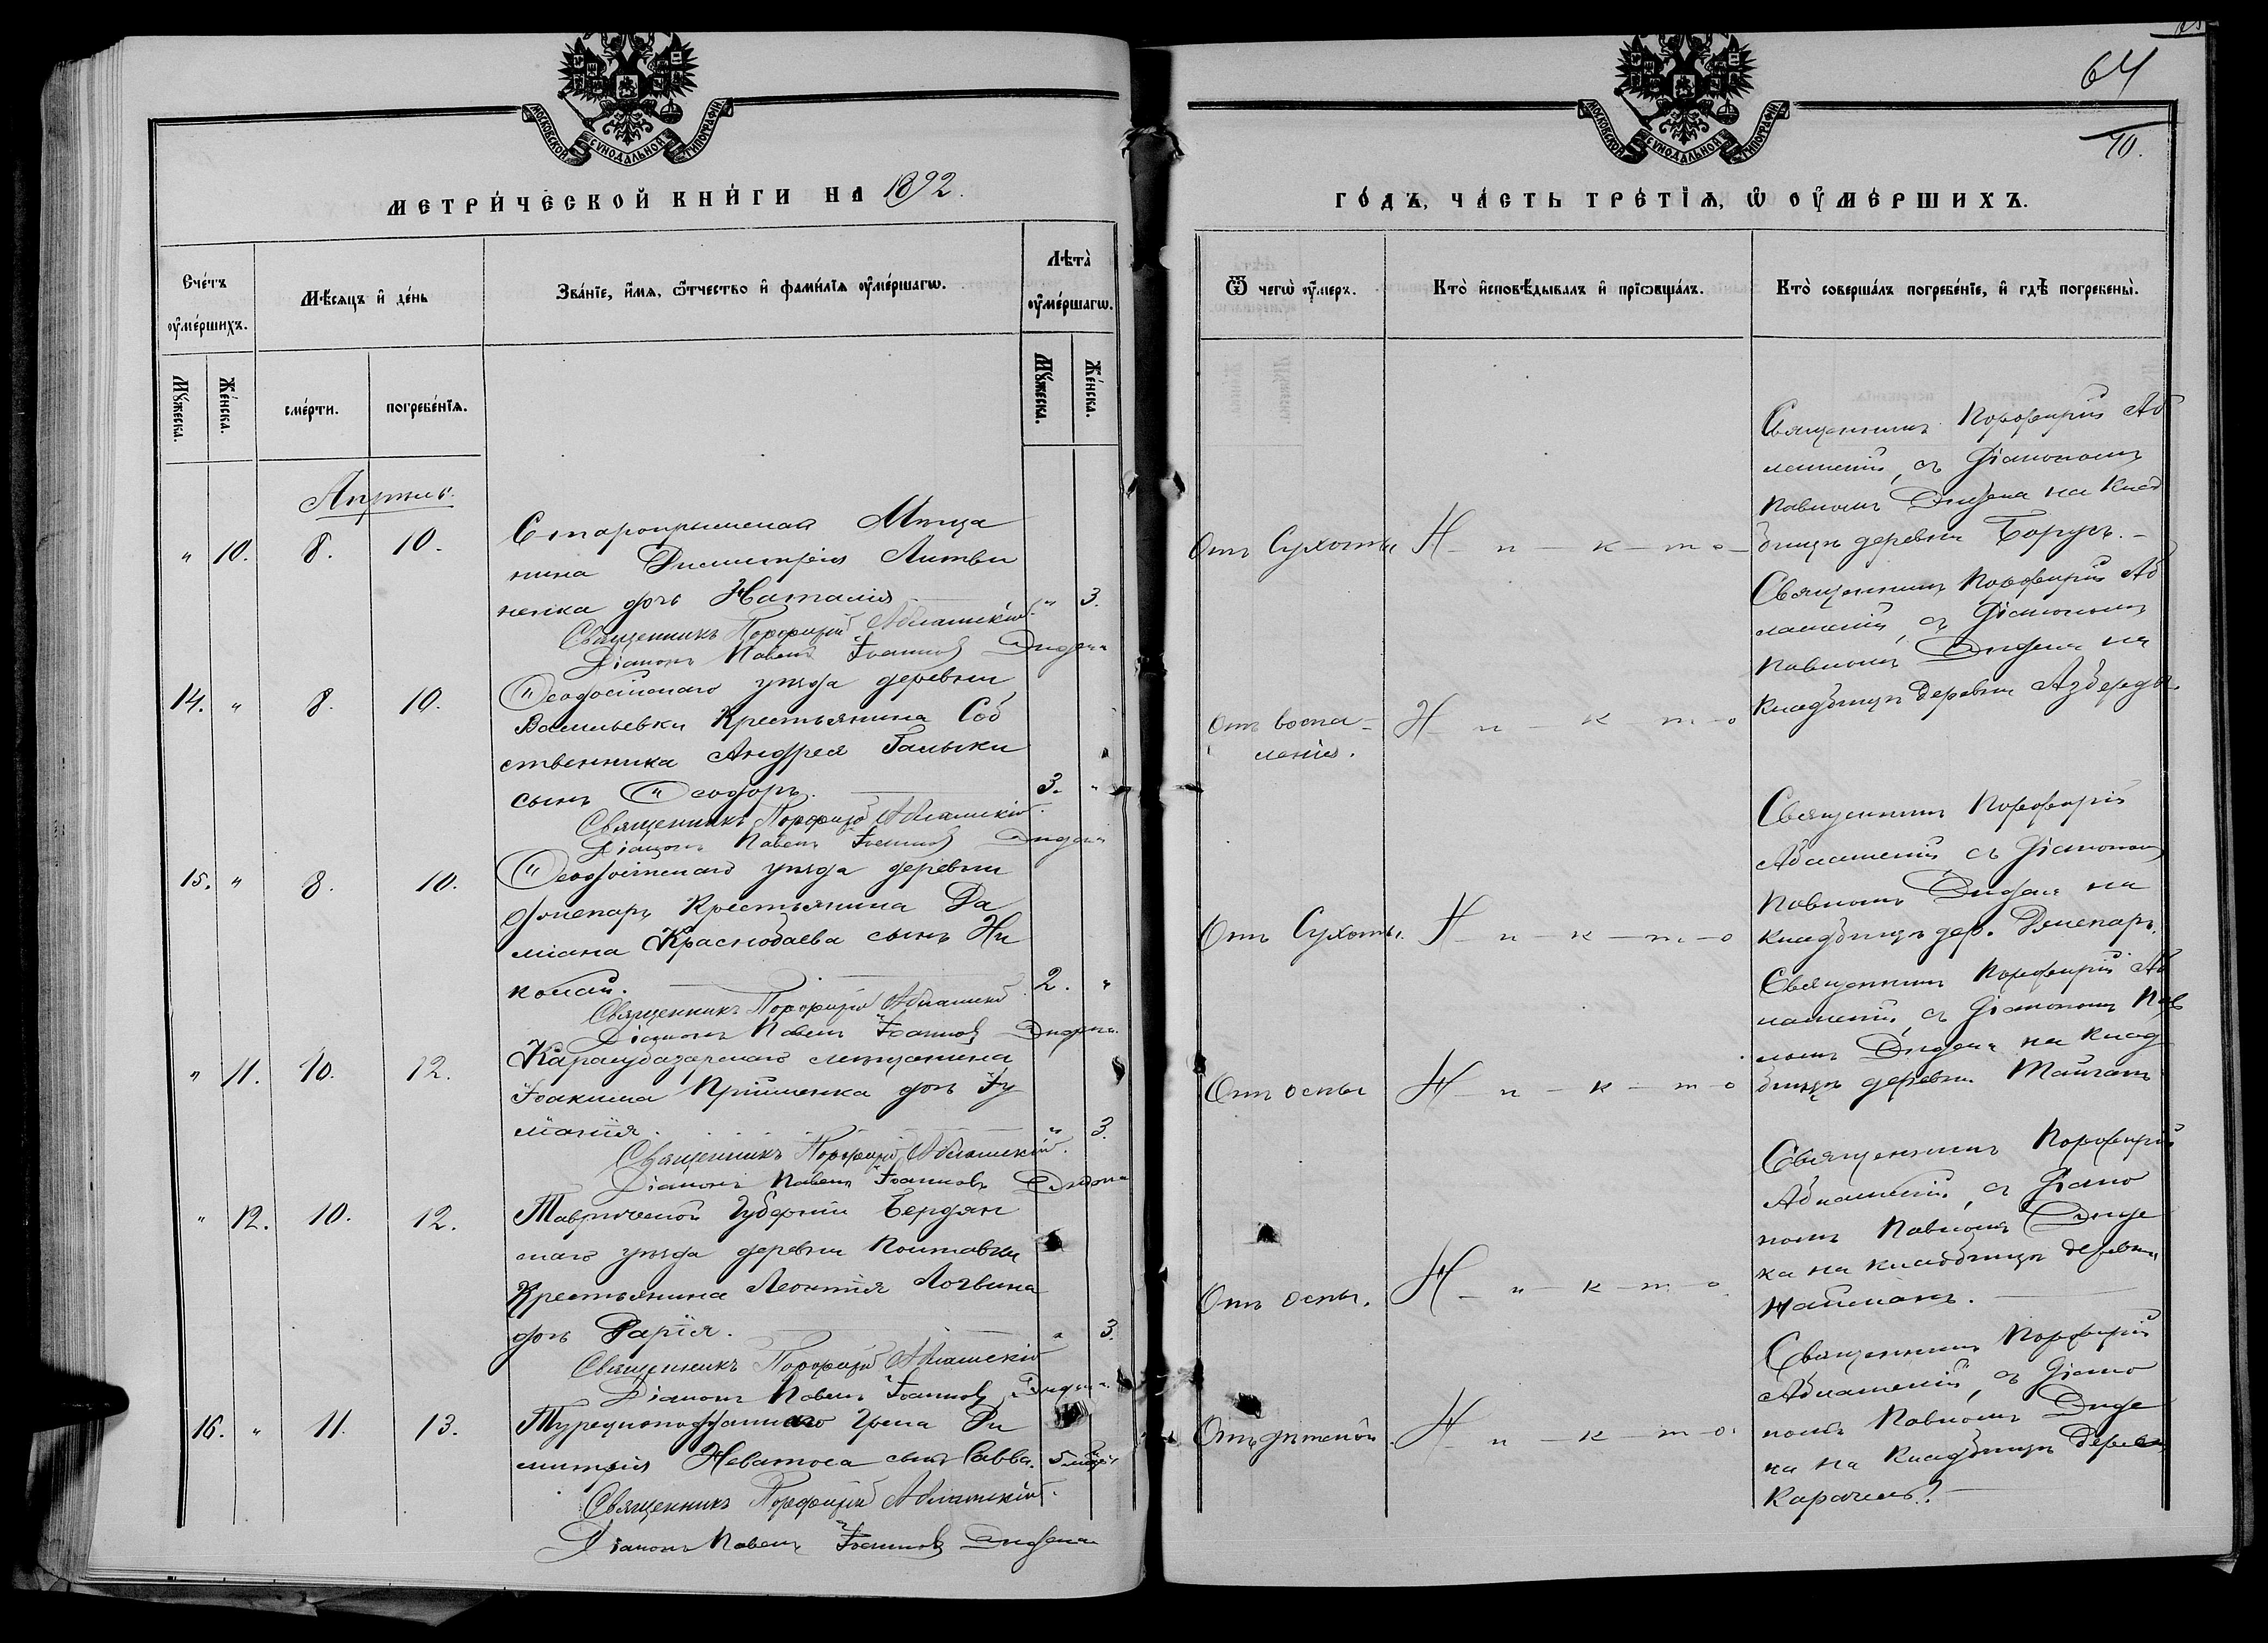 МОСКОВСКОЙ СѴНОДАЛЬНОЙ ТИПОГРАФІИ
МЕТРИ́ЧЕСКОЙ КНИ́ГИ НА 1892.
Сче́тъ ᲂу҆ме́ршихъ.
Мѣ́сяцъ и҆ де́нь
Зва́нїе, и҆́мѧ, ѻ҆́тчество и҆ фами́лїѧ ᲂу҆ме́ршагѡ.
Лѣта̀ ᲂу҆ме́ршагѡ.
Мꙋ́жеска.
Же́нска.
сме́рти.
погребе́нїѧ.
Мꙋ́жеска.
Же́нска.
Апрѣль.
" 10. 8. 10.
Старокрымскаго Мѣща
нина Димитрія Литви
ненка дочь Наталія " 3.
Священникъ Порфирій Аблашскій.
Діаконъ Павелъ Іоанновъ Дидена
14. " 8. 10.
Ѳеодосійскаго уѣзда деревни
Васильевки Крестьянина Соб
ственника Андрея Галыки
сынъ Ѳеодоръ. 3. "
Священникъ Порфирій Аблашскій.
Діаконъ Павелъ Іоанновъ Дидена
15. " 8. 10.
Ѳеодосійскаго уѣзда деревни
Крестьянина Да
міана Краснобаева сынъ Ни
колай. 2. "
Священникъ Порфирій Аблашскій
Діаконъ Павелъ Іоанновъ Дидена
" 11. 10. 12.
Карасубазарскаго мѣщанина
Іоакима дочь Іу
ліанія. " 3.
Священникъ Порфирій Аблашскій.
Діаконъ Павелъ Іоанновъ Дидена
" 12. 10. 12.
Таврической Губерніи Бердян
скаго уѣзда деревни Полтавки
Крестьянина Леонтія Логвина
дочь Дарія. " 3.
Священникъ Порфирій Аблашскій
Діаконъ Павелъ Іоанновъ Дидена
16. " 11. 13.
Турецкоподданнаго Грека Ди
митрія сынъ Савва. 5
Священникъ Порфирій Аблашскій.
Діаконъ Павелъ Іоанновъ Дидена
64
70.
МОСКОВСКОЙ СѴНОДАЛЬНОЙ ТИПОГРАФІИ
ГО́ДЪ, ЧА́СТЬ ТРЕ́ТЇѦ, Ѡ҆ ОУ҆МЕ́РШИХЪ.
Ѿ чегѡ̀ ᲂу҆́меръ.
Кто̀ и҆сповѣ́дывалъ и҆ прїѡбща́лъ.
Кто̀ соверша́лъ погребе́нїе, и҆ гдѣ̀ погребены̀.
Отъ Сухоты
Н-и-к-т-о
Священникъ Порфирій Аб
лашскій, съ Діакономъ
Павломъ Дидена на клад
бищѣ деревни Борусъ.
Отъ воспа-
ленія.
Н-и-к-т-о
Священникъ Порфирій Аб
лашскій, съ Діакономъ
Павломъ Дидена на
кладбищѣ деревни Азберды.
Отъ Сухоты.
Н-и-к-т-о
Священникъ Порфирій
Аблашскій съ Діакономъ
Павломъ Дидена на
кладбищѣ дер.
Отъ оспы
Н-и-к-т-о
Священникъ Порфирій Аб
лашскій, съ Діакономъ Пав
ломъ Дидена на клад
бищѣ деревни Тайганъ
Отъ оспы.
Н-и-к-т-о
Священникъ Порфирій
Аблашскій, съ Діако
номъ Павломъ Диде
на на кладбищѣ деревни
Найманъ.
Н-и-к-т-о.
Священникъ Порфирій
Аблашскій, съ Діако
номъ Павломъ Диде
на на кладбищѣ деревни